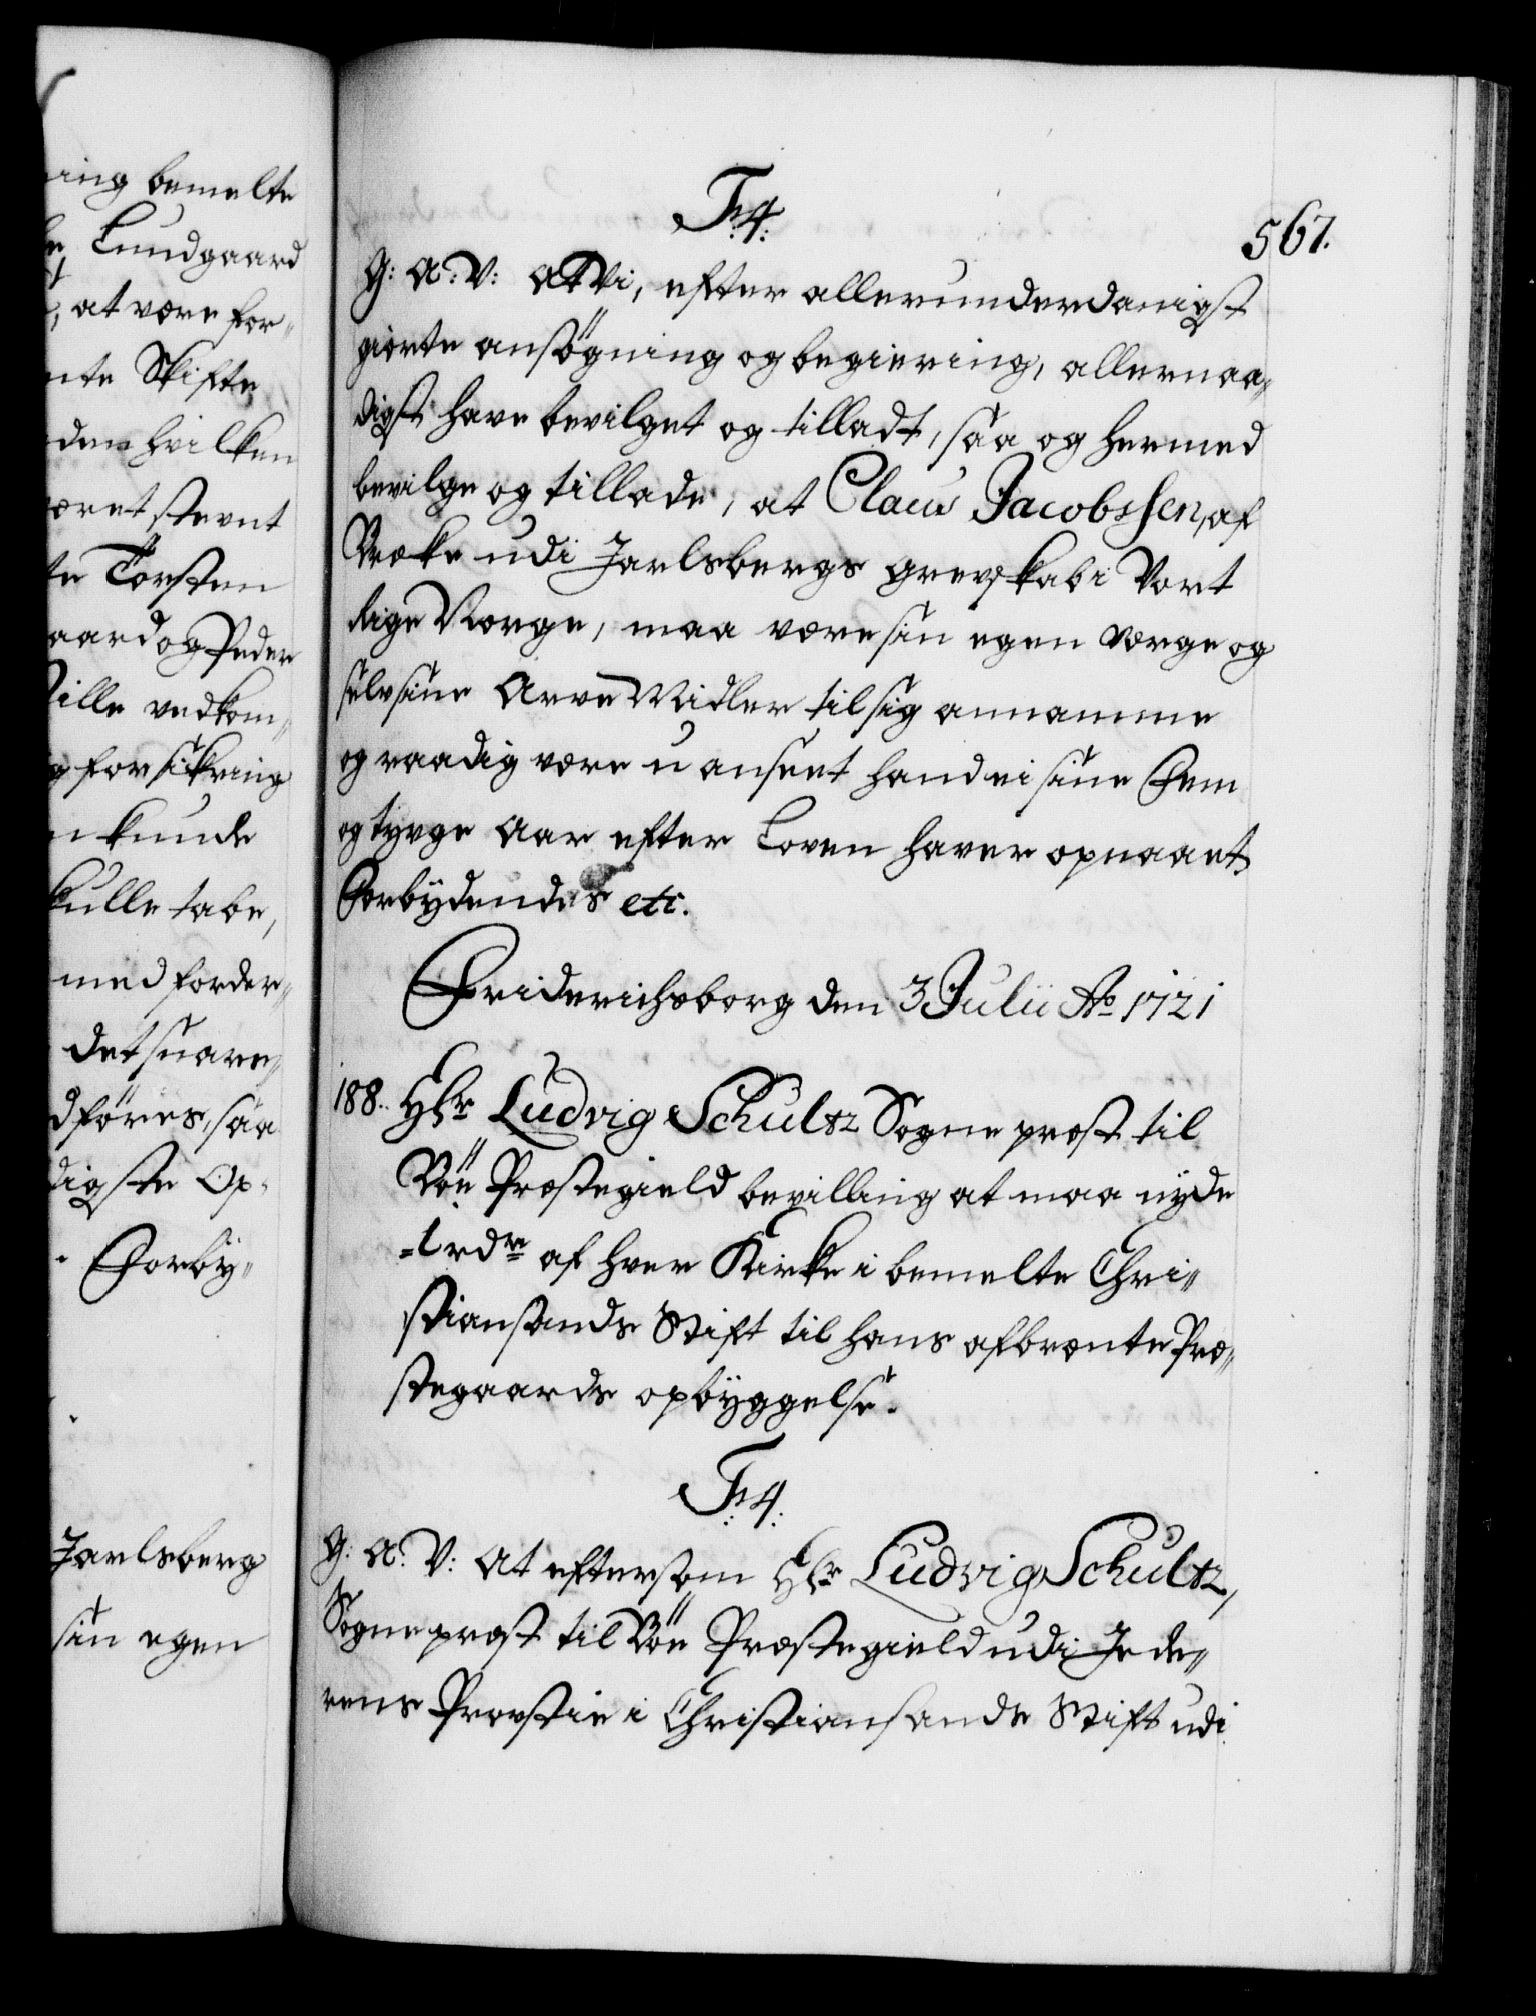 ning bemelte
Lundgaard
, at være for¬
nte Skifte
den hvilken
været stevnt
te Torsten
aard og Peder
ille vedkom¬
g forsikring
n kunde
kulle tabe,
med forder¬
det svare¬
dføres, saa
digste Op¬
Forby¬
Jarlsberg
sin egen
567.
F. 4.
G: A: V: At Vi, efter allerunderdanigst
giorte ansøgning og begiering, allernaa¬
digst have bevilget og tilladt, saa og hermed
bevilge og tillade, at Claus Jacobssen, af
Ræke udi Jarlsbergs grevskab i Vort
Rige Norge, maa være sin egen Værge og
selv sine Arve Midler til sig annamme
og raadig være u anseet hand ei sine Fem
og tyvge Aar efter Loven haver opnaaet
Forbydendes etc.
Friderichsborg den 3 Julii Ao 1721
188. Hr Ludvig Schultz Sogne præst til
Bøe Præstegield bevilling at maa nyde
1 rdr af hver Kirke i bemelte Chri¬
stiansands Stift til hans afbrænte Præ¬
stegaards opbyggelse.
F. 4.
G: A: V: At eftersom Hr Ludvig Schultz,
Sogne præst til Bøe Præstegield udi Jede¬
rens Provstie i Christiansands Stift udi